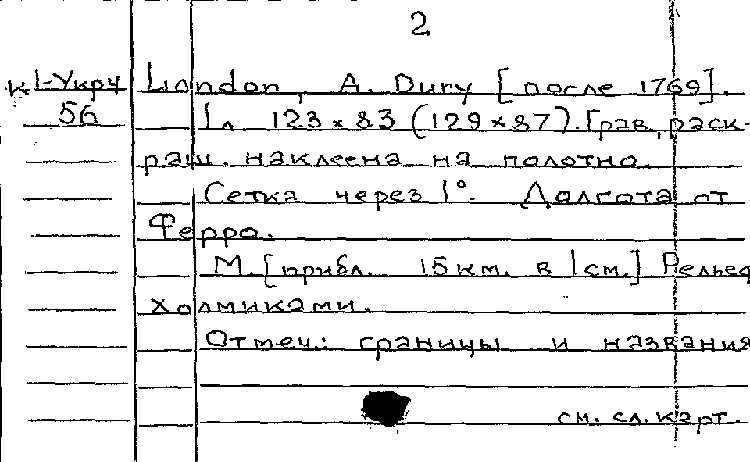 2
К 1-Укр4 London, A. Dury [после 1769].
56 1 л 123 × 83 (129 × 87). Грав, раск-
раш. наклеена на полотно.
Сетка через 1°. Долгота от
Ферро.
М. [прибл. 15 км. в 1 см.] Рельеф
холмиками.
Отмеч: границы и названия
см. сл. карт.